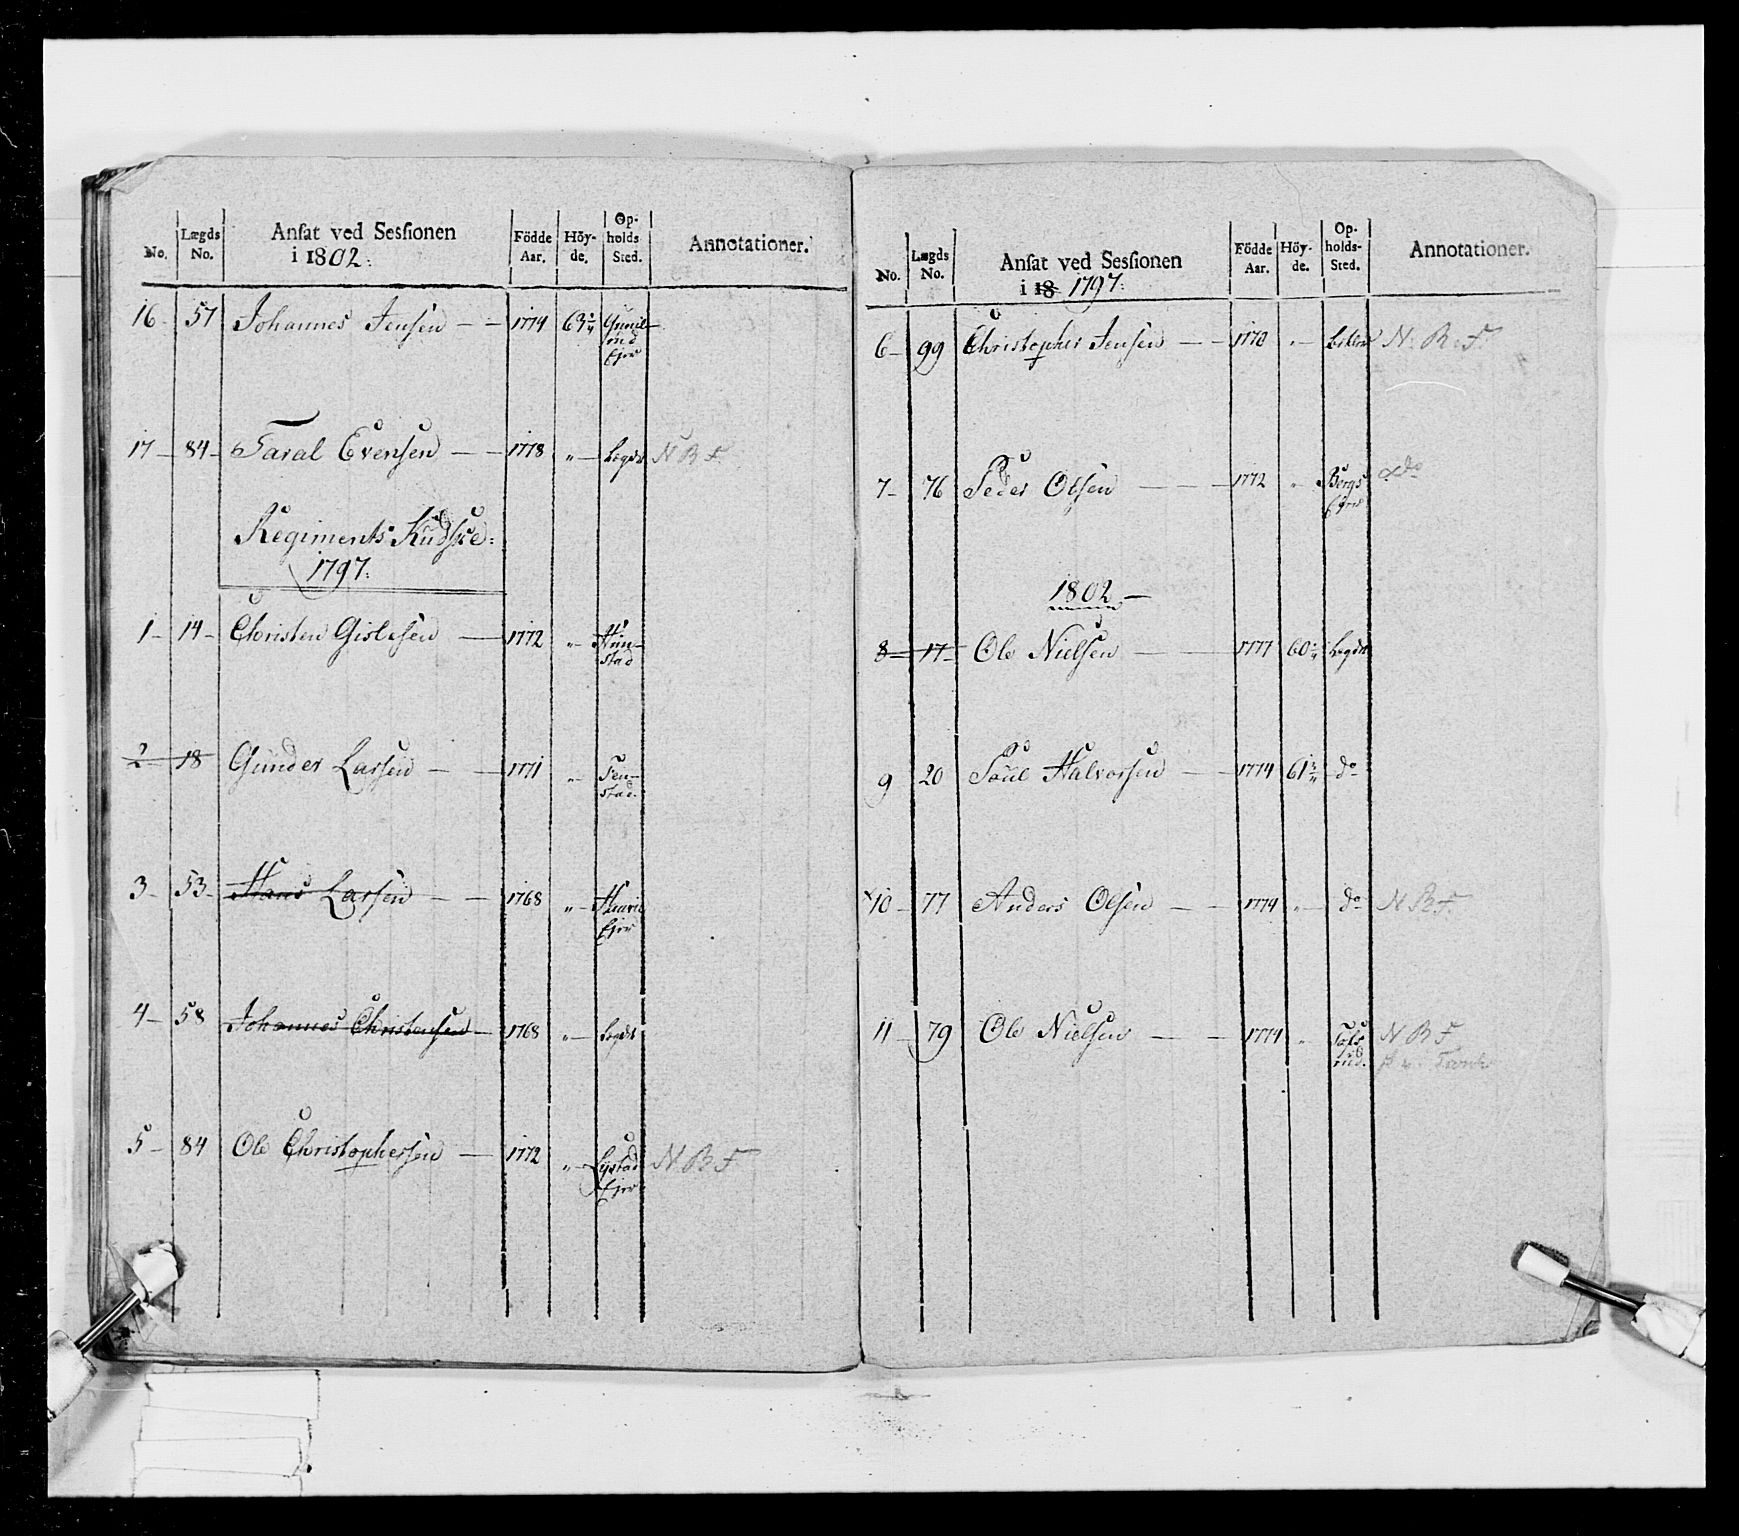 No. Lægds No. Ansat ved Sessionen i 1802. Födde Aar. Höy-de. Op-holds Sted. Annotationer.
16 57 Johannes Jensen 1774
17 84 Taral Evensen 1778 " Legdet N B F.
Regiments Kudske
1797.
1 14 Christen Gislesen 1772 "
2 18 Gunder Larsen 1771 "
3 53 Hans Larsen 1768 "
4 58 Johannes Christensen 1768 " Legdet
5 84 Ole Christophersen 1772 " N B F
No. Lægds No. Ansat ved Sessionen i 18 1797. Födde Aar. Höy-de. Op-holds-Sted. Annotationer.
6 99 Christopher Jensen 1770 " N. B. F.
7 76 Peder Olsen 1772 " do
1802
8 17 Ole Nielsen 1777 Legdet
9 20 Poul Halvorsen 1774 do
10 77 Anders Olsen 1774 " do N B F.
11 79 Ole Nielsen 1774 " N B F